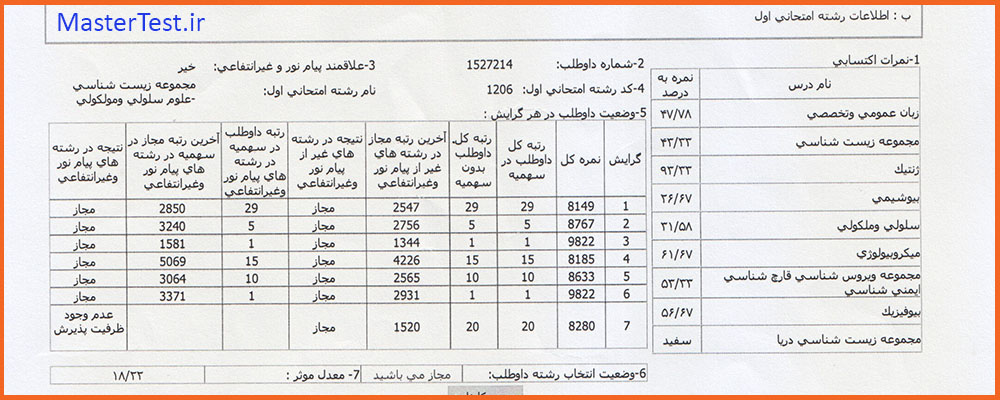 MasterTest.ir
ب : اطلاعات رشته امتحاني اول
1-نمرات اكتسابي
2-شماره داوطلب: 1527214
3-علاقمند پيام نور و غيرانتفاعي: خير
4-كد رشته امتحاني اول: 1206
نام رشته امتحاني اول: مجموعه زيست شناسي
-علوم سلولي ومولكولي
5-وضعيت داوطلب در هر گرايش :
نام درس | نمره به درصد
زبان عمومي وتخصصي | ۴۷/۷۸
مجموعه زيست شناسي | ۴۳/۳۳
ژنتيك | ۹۳/۳۳
بيوشيمي | ۲۶/۶۷
سلولي وملكولي | ۳۱/۵۸
ميكروبيولوژي | ۶۱/۶۷
مجموعه ويروس شناسي قارچ شناسي
ايمني شناسي | ۵۳/۳۳
بيوفيزيك | ۵۶/۶۷
مجموعه زيست شناسي دريا | سفيد
گرايش | نمره كل | رتبه كل داوطلب در سهميه | رتبه كل داوطلب بدون سهميه | آخرين رتبه مجاز در رشته هاي غير از پيام نور وغيرانتفاعي | نتيجه در رشته هاي غير از پيام نور وغيرانتفاعي | رتبه داوطلب در سهميه در رشته هاي پيام نور وغيرانتفاعي | آخرين رتبه مجاز در سهميه در رشته هاي پيام نور وغيرانتفاعي | نتيجه در رشته هاي پيام نور وغيرانتفاعي
1 | 8149 | 29 | 29 | 2547 | مجاز | 29 | 2850 | مجاز
2 | 8767 | 5 | 5 | 2756 | مجاز | 5 | 3240 | مجاز
3 | 9822 | 1 | 1 | 1344 | مجاز | 1 | 1581 | مجاز
4 | 8185 | 15 | 15 | 4226 | مجاز | 15 | 5069 | مجاز
5 | 8633 | 10 | 10 | 2565 | مجاز | 10 | 3064 | مجاز
6 | 9822 | 1 | 1 | 2931 | مجاز | 1 | 3371 | مجاز
7 | 8280 | 20 | 20 | 1520 | مجاز | عدم وجود ظرفيت پذيرش
6-وضعيت انتخاب رشته داوطلب: مجاز مي باشيد
7- معدل موثر : ۱۸/۲۳